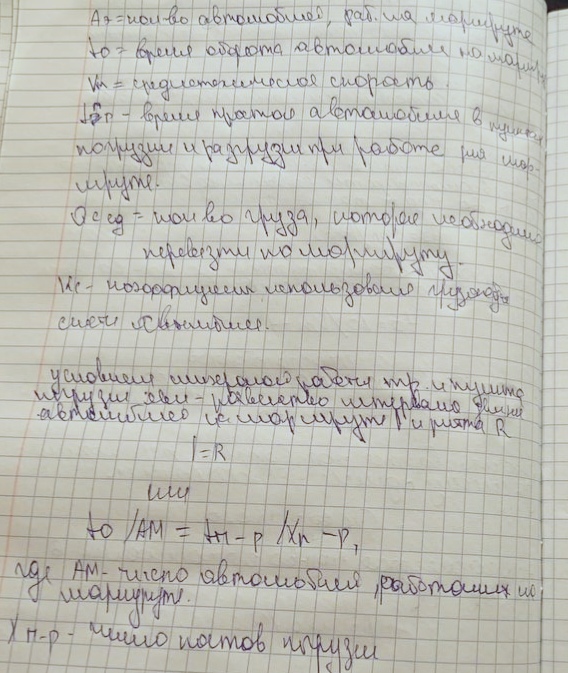 Ам = кол-во автомобилей, раб. на маршруте
to = время оборота автомобиля на маршру
Vm = среднетехническая скорость.
tп - время простоя автомобиля в пунктах
погрузки и разгрузки при работе на мар-
шруте.
Qсед = кол во груза, которое необходимо
перевезти по маршруту.
Кс - коэффициент использования грузоподъ
емности автомобиля.
условием работы тр. и пункта
погрузки яви - равенство интервала движе
автомобилей на маршруте I и ритма R
I = R
или
to / AM = tп-р / Xп-р,
где АМ - число автомобилей, работающих на
маршруте.
Xп-р - число постов погрузки